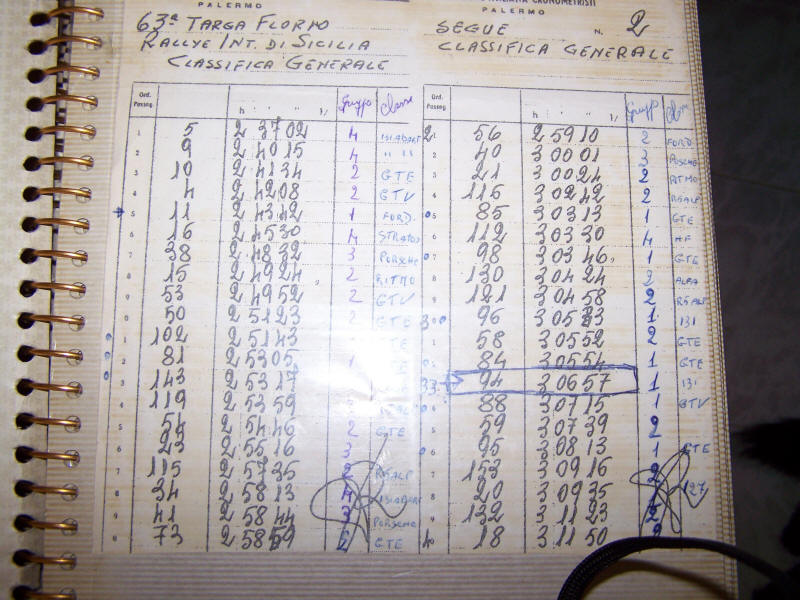 PALERMO
63ª TARGA FLORIO
RALLYE INT. DI SICILIA
CLASSIFICA GENERALE
Ord. Passag. h ' " 1/5 Gruppo Classe
1 5 2 37 02 4
2 9 2 40 15 4 " "
3 10 2 41 34 2 GTE
4 4 2 42 08 2 GTV
5 11 2 43 42 1 FORD
6 16 2 45 30 4 STRATOS
7 38 2 48 32 3 PORSCHE
8 15 2 49 24 2 RITMO
9 53 2 49 52 2 GTV
0 50 2 51 23 2 GTE
1 102 2 51 43 GTE
2 81 2 53 05 1 GTE
3 143 2 53 17
4 119 2 53 59
5 54 2 54 46 2 GTE
6 23 2 55 16 3
7 115 2 57 35 2 R5ALP
8 34 2 58 13 4
9 41 2 58 44 3 PORSCHE
0 73 2 58 59 2 GTE
CRONOMETRISTI
PALERMO
SEGUE N. 2
CLASSIFICA GENERALE
Ord. Passag. h ' " 1/5 Gruppo Classe
21 56 2 59 10 2 FORD
2 40 3 00 01 3 PORSCHE
3 21 3 00 24 2 RITMO
4 116 3 02 42 2 R5ALP
5 85 3 03 13 1 GTE
6 112 3 03 30 4 HF
7 98 3 03 46 1 GTE
8 130 3 04 24 2 ALFA
9 121 3 04 58 2 R5ALP
30 96 3 05 33 1 131
1 58 3 05 52 2 GTE
2 84 3 05 54 1 GTE
33 94 3 06 57 1 131
4 88 3 07 15 1 GTV
5 59 3 07 39 2
6 95 3 08 13 1 RTE
7 153 3 09 16 2
8 20 3 09 35 127
9 132 3 11 23 2
40 18 3 11 50